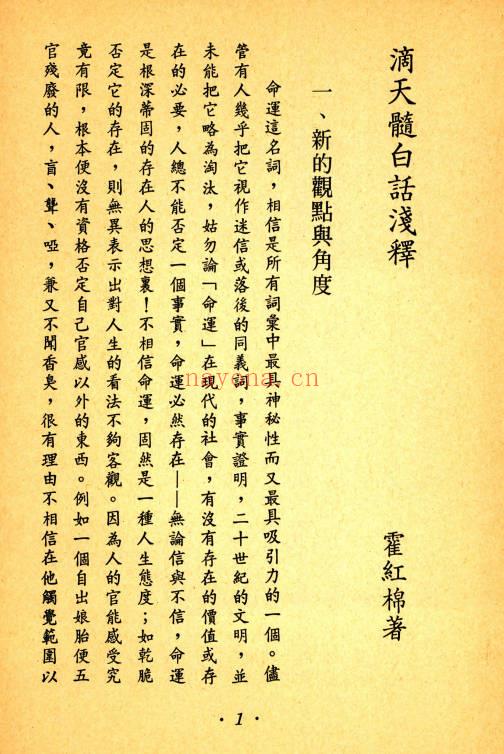 滴天髓白話淺釋
霍紅棉著
一、新的觀點與角度
命運這名詞，相信是所有詞彙中最具神秘性而又最具吸引力的一個。儘
管有人幾乎把它視作迷信或落後的同義詞，事實證明，二十世紀的文明，並
未能把它略為淘汰，姑勿論「命運」在現代的社會，有沒有存在的價值或存
在的必要，人總不能否定一個事實，命運必然存在——無論信與不信，命運
是根深蒂固的存在人的思想裏！不相信命運，固然是一種人生態度；如乾脆
否定它的存在，則無異表示出對人生的看法不夠客觀。因為人的官能感受究
竟有限，根本便沒有資格否定自己官感以外的東西。例如一個自出娘胎便五
官殘廢的人，盲、聾、啞，兼又不聞香臭，很有理由不相信在他觸覺範圍以
nayena.cn
·1·